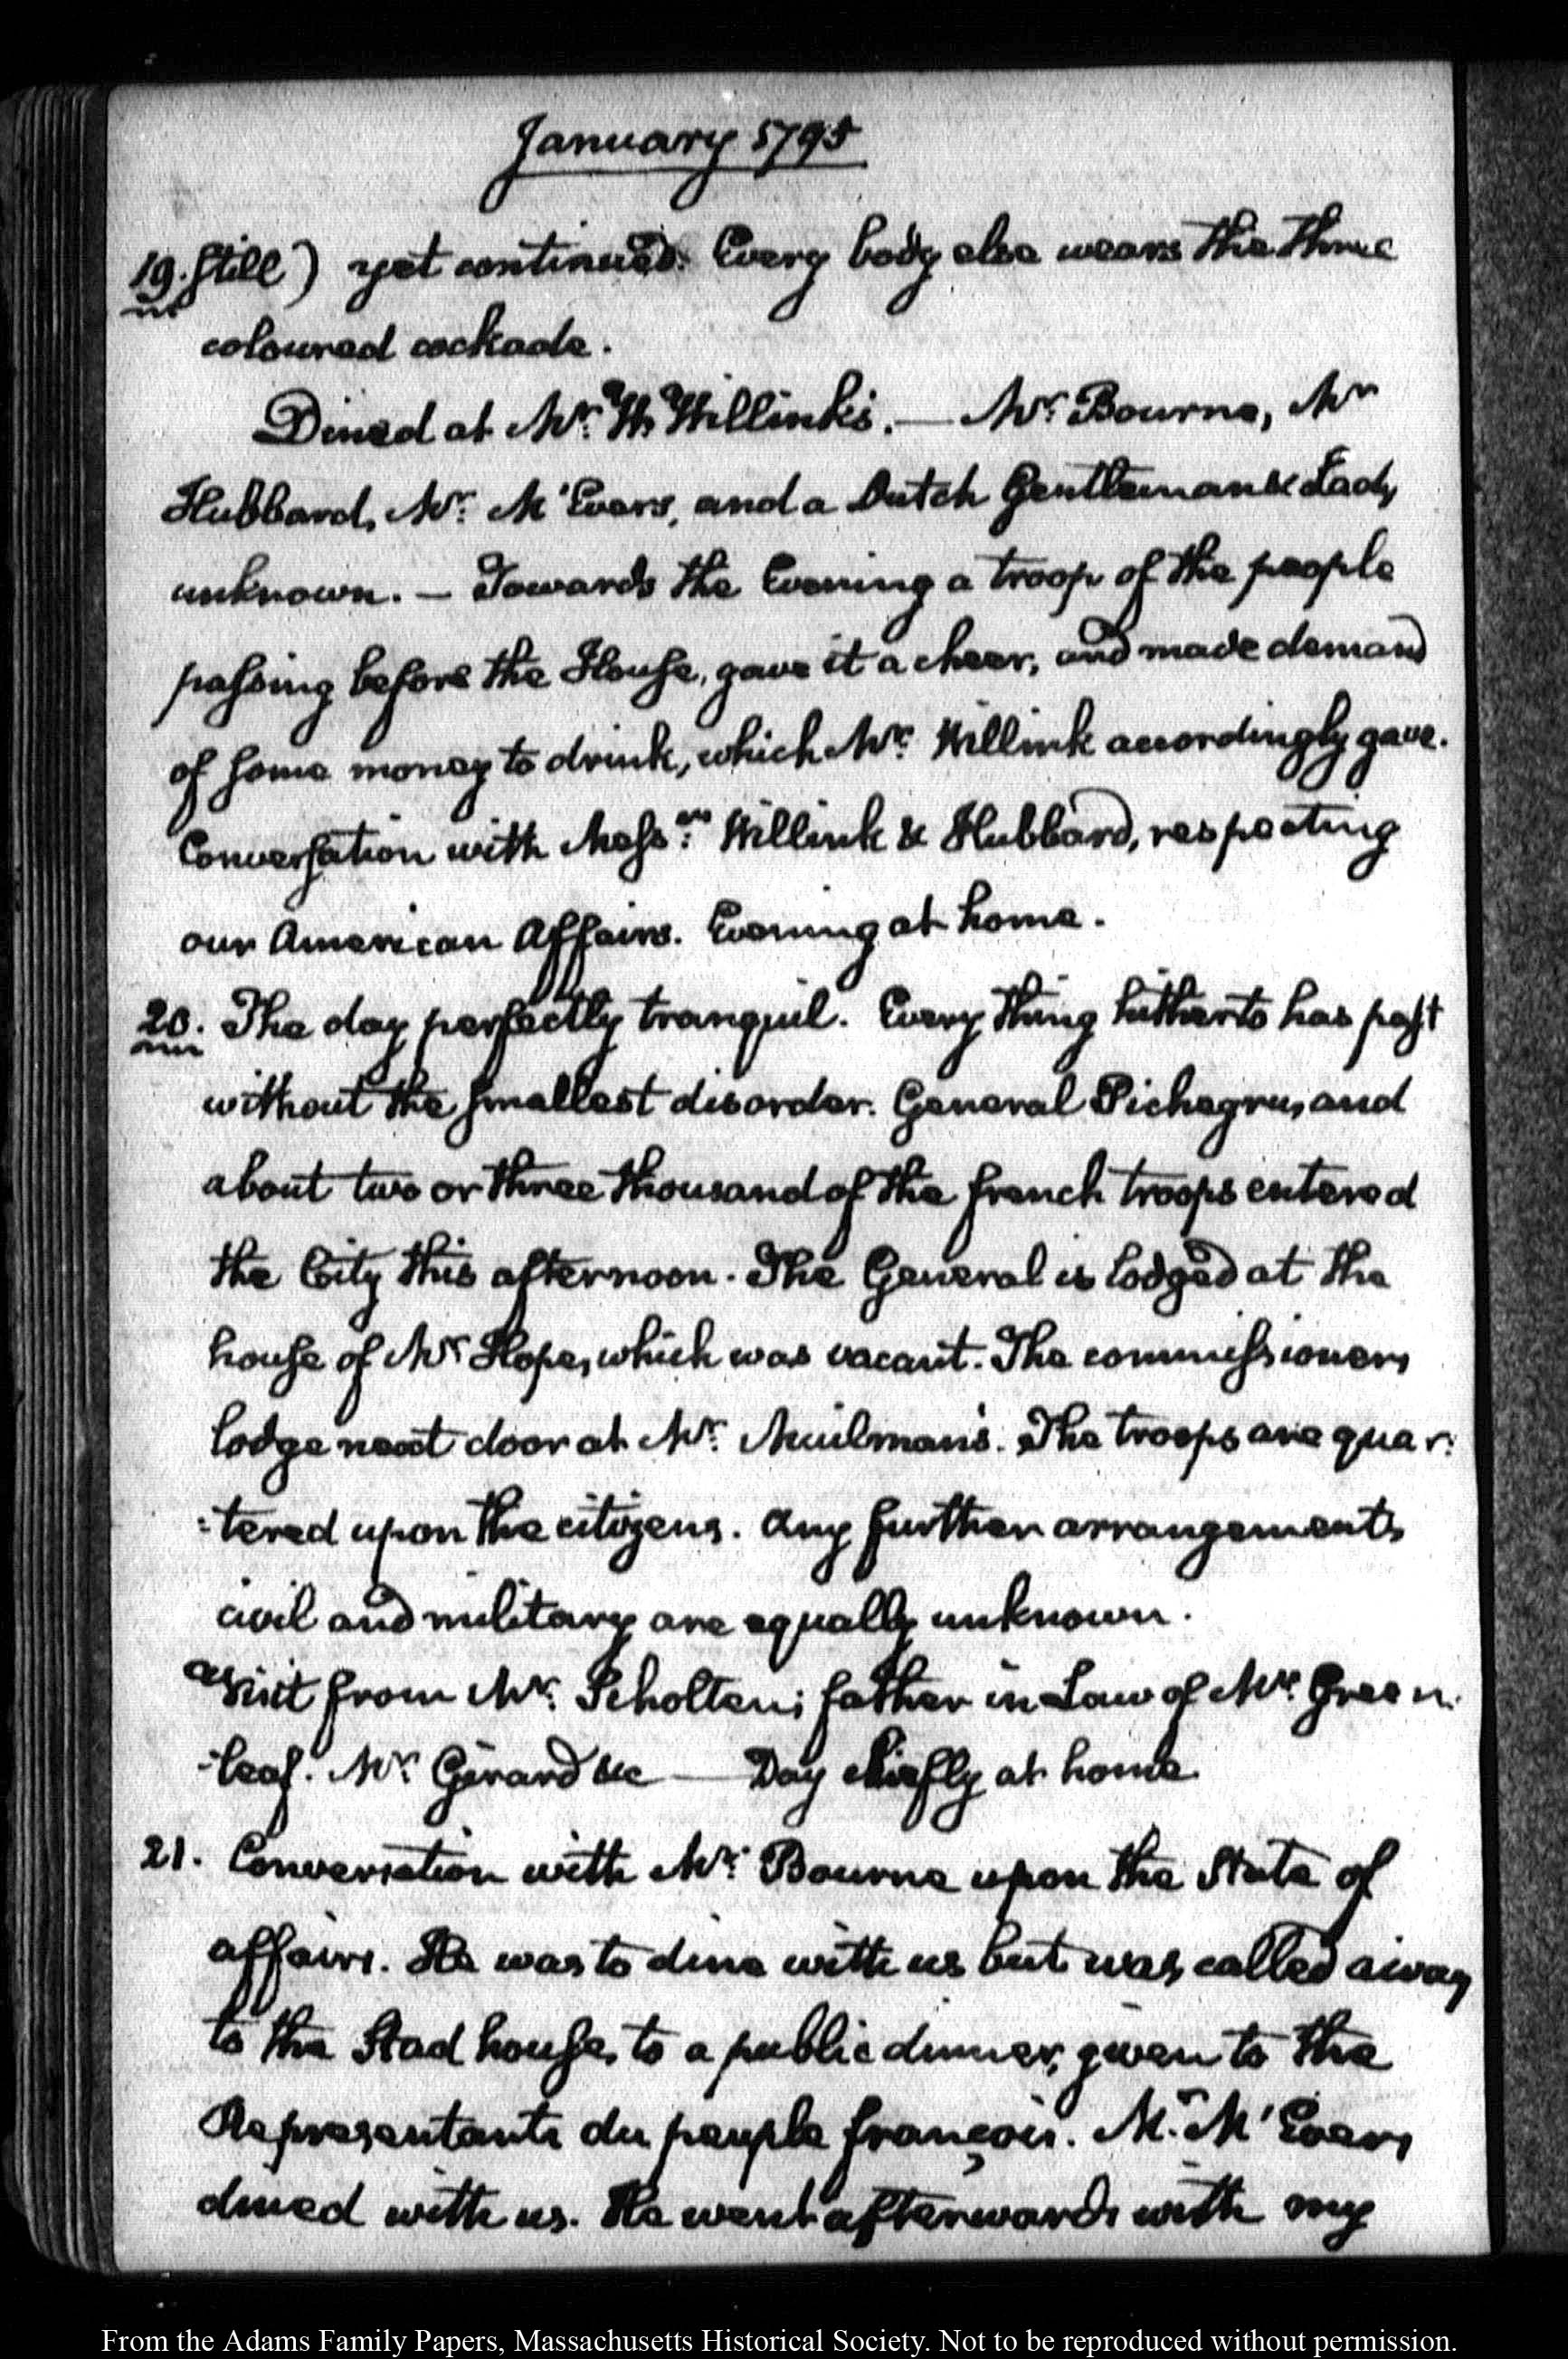 January 1795
19. still) yet continued. Every body else wears the three
coloured cockade.
Dined at Mr. W. Willink's. — Mr. Bourne, Mr
Hubbard, Mr. M'Evers, and a Dutch Gentleman & Lady
unknown. — Towards the Evening a troop of the people
passing before the House, gave it a cheer, and made demand
of some money to drink, which Mr. Willink accordingly gave.
Conversation with Messrs. Willink & Hubbard, respecting
our American Affairs. Evening at home.
20. The day perfectly tranquil. Every thing hitherto has past
without the smallest disorder. General Pichegru, and
about two or three thousand of the french troops entered
the City this afternoon. The General is lodged at the
house of Mr Hope, which was vacant. The commissioners
lodge next door at Mr. Muilman's. The troops are quar:
:tered upon the citizens. Any further arrangements
civil and military are equally unknown.
a visit from Mr. Scholten; father in Law of Mr. Green:
-leaf. Mr. Girard &c — Day chiefly at home
21. Conversation with Mr. Bourne upon the State of
affairs. He was to dine with us but was called away
to the Stad house, to a public dinner, given to the
Representants du peuple françois. Mr. M'Evers
dined with us. He went afterwards with my
From the Adams Family Papers, Massachusetts Historical Society. Not to be reproduced without permission.